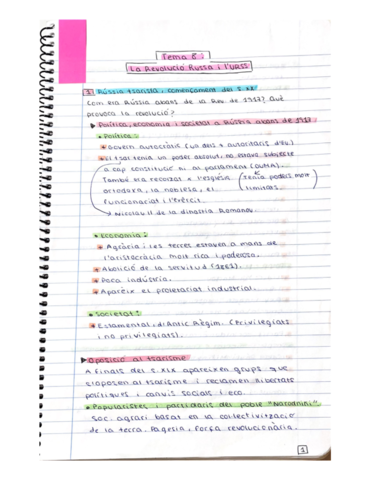 Tema 8:
La Revolució Russa i l'URSS
1 Rússia tsarista, començament del S.XX
Com era Rússia abans de la Rev. de 1917? Què
provoca la revolució?
▸ Política, economia i societat a Rússia abans de 1917
• Política:
→ Govern autocràcia (un dels + autoritaris d'Eu.)
→ El tsar tenia un poder absolut, no estava subjecte
a cap constitució ni al parlament (DUMA).
També era recolzat x l'església
ortodoxa, la noblesa, el
funcionariat i l'exèrcit.
Tenia poders molt
limitats.
→ Nicolau II de la dinastia Romanov.
• Economia:
→ Agrària i les terres estaven a mans de
l'aristocràcia molt rica i poderosa.
→ Abolició de la servitud (1861)
→ Poca indústria.
→ Apareix el proletariat industrial.
• Societat:
→ Estamental, d'Antic Règim. (Privilegiats
i no privilegiats).
▸ Oposició al tsarisme
A finals del S.XIX apareixen grups que
s'oposen al tsarisme i reclamen llibertats
polítiques i canvis socials i eco.
• Populistes i partidaris del poble "Narodnini".
Soc. agrari basat en la col·lectivització
de la terra. Pagesia, força revolucionària.
1